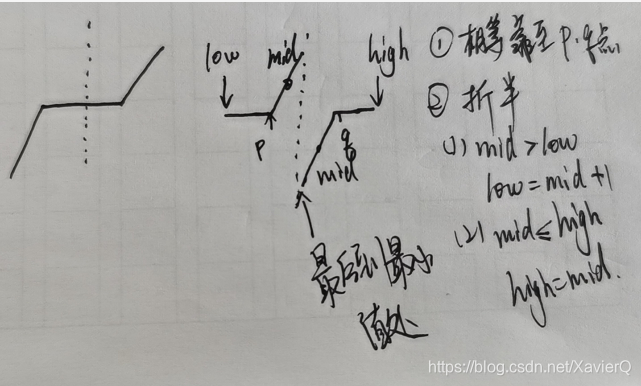 low
mid
high
p
q
mid
最后到最小
值处
① 相等靠至 p.q点
② 折半
(1) mid > low
low = mid + 1
(2) mid ≤ high
high = mid.
https://blog.csdn.net/XavierQ